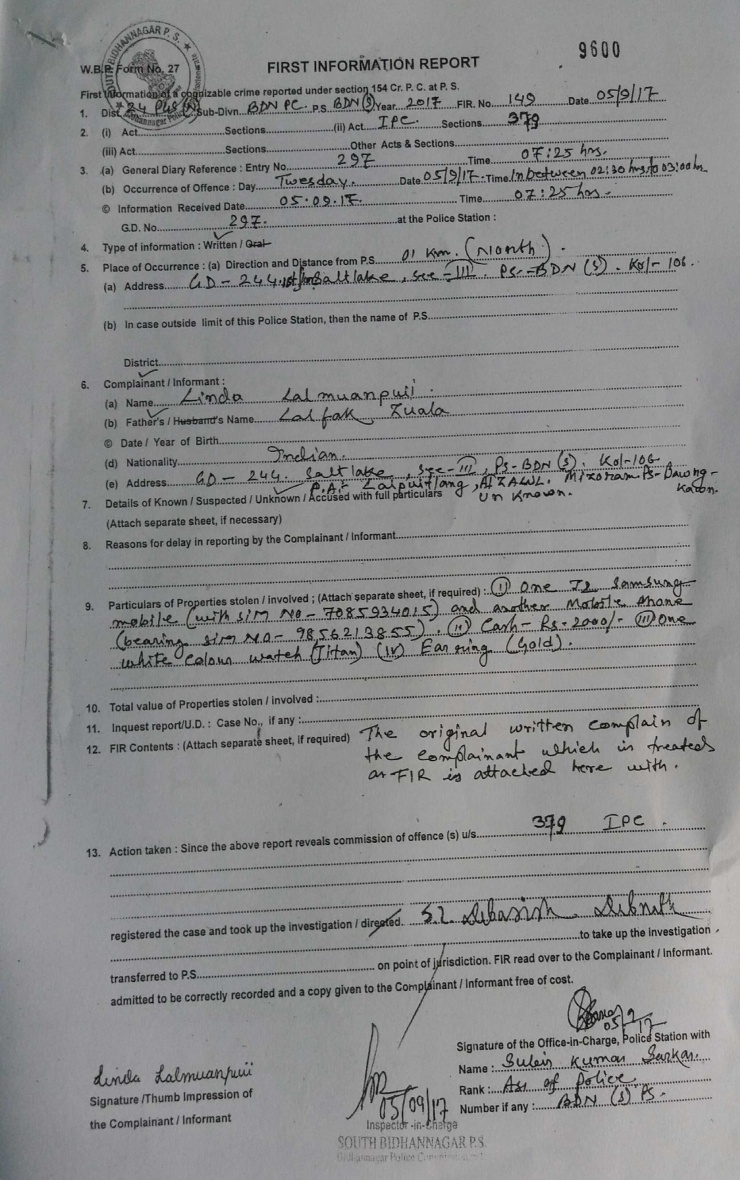 9600
SOUTH BIDHANNAGAR P. S.
W.B.P. Form No. 27
FIRST INFORMATION REPORT
First Information of a cognizable crime reported under section 154 Cr. P. C. at P. S.
1. Dist. 24 PGS (N) Sub-Divn. BDN PC. P.S. BDN (S) Year 2017 FIR. No. 149 Date 05/9/17
2. (i) Act Sections (ii) Act IPC. Sections 379
(iii) Act Sections Other Acts & Sections
3. (a) General Diary Reference : Entry No. 297 Time 07:25 hrs.
(b) Occurrence of Offence : Day Twesday. Date 05/9/17. Time In between 02:30 hrs to 03:00 hrs
© Information Received Date 05.09.17. Time 07:25 hrs.
G.D. No. 297. at the Police Station :
4. Type of information : Written / Oral
5. Place of Occurrence : (a) Direction and Distance from P.S. 01 Km. (North).
(a) Address GD - 244, Saltlake, sec - III. Ps. - BDN (S). Kol - 106.
(b) In case outside limit of this Police Station, then the name of P.S.
District
6. Complainant / Informant :
(a) Name Linda Lalmuanpuii.
(b) Father's / Husband's Name Lalfak Zuala
© Date / Year of Birth
(d) Nationality Indian.
(e) Address GD - 244. Salt lake, sec - III, Ps - BDN (S). Kol - 106
AIZAWL. Mizoram Ps -
7. Details of Known / Suspected / Unknown / Accused with full particulars Un Known.
(Attach separate sheet, if necessary)
8. Reasons for delay in reporting by the Complainant / Informant
9. Particulars of Properties stolen / involved ; (Attach separate sheet, if required) : (i) One J2 Samsung
mobile (with sim No - 7085934015) and another Mobile phone
(bearing sim No - 9856213855). (ii) Cash - Rs. 2000/- (iii) One
white colour watch (Titan) (iv) Ear ring (Gold).
10. Total value of Properties stolen / involved :
11. Inquest report/U.D. : Case No., if any :
12. FIR Contents : (Attach separate sheet, if required) The original written complain of
the complainant which is treated
as FIR is attached here with.
13. Action taken : Since the above report reveals commission of offence (s) u/s. 379 IPC.
registered the case and took up the investigation / directed. S.I. Debasish Debnath
to take up the investigation
transferred to P.S. on point of jurisdiction. FIR read over to the Complainant / Informant.
admitted to be correctly recorded and a copy given to the Complainant / Informant free of cost.
05/9/17
Signature of the Office-in-Charge, Police Station with
Name : Kumar Sarkar.
Rank : ASI of police
Number if any : BDN (S) PS.
Linda Lalmuanpuii
Signature /Thumb Impression of
the Complainant / Informant
05/09/17
Inspector-in-Charge
SOUTH BIDHANNAGAR P.S.
Bidhannagar Police